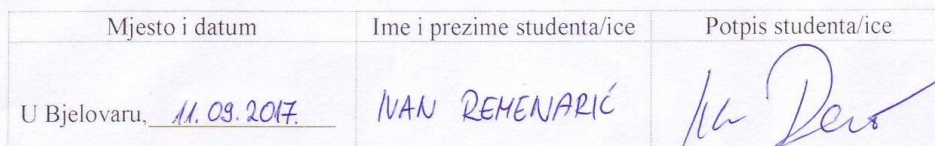 Mjesto i datum Ime i prezime studenta/ice Potpis studenta/ice
U Bjelovaru, 11.09.2017. IVAN REMENARIĆ